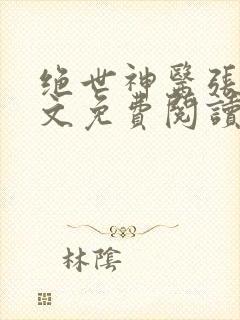 绝世神醫張
文免費閱讀
林陰